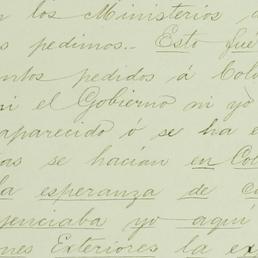 n los Ministerios
s pedimos.. Esto fué
ntos pedidos á Col
ni el Gobierno ni yo
aparecido ó se ha e
as se hacían en Co
la esperanza de c
genciaba yo aquí
nes Exteriores la ex